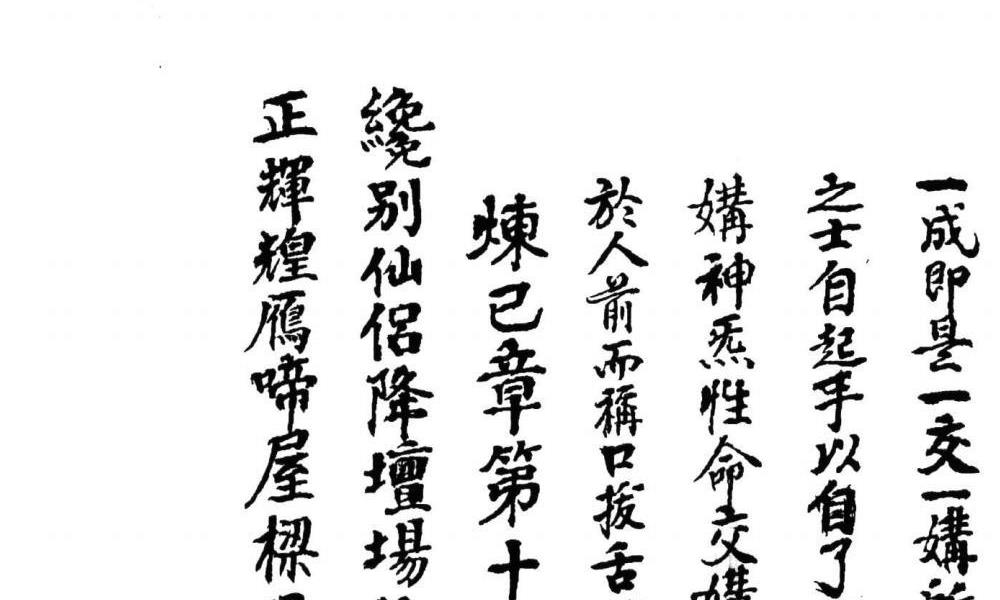 一成即是一交一媾
之士自起手以自了
媾神炁性命交媾
於人前而稱口拔舌
煉己章第十
纔別仙侶降壇場
正輝煌雁啼屋樑